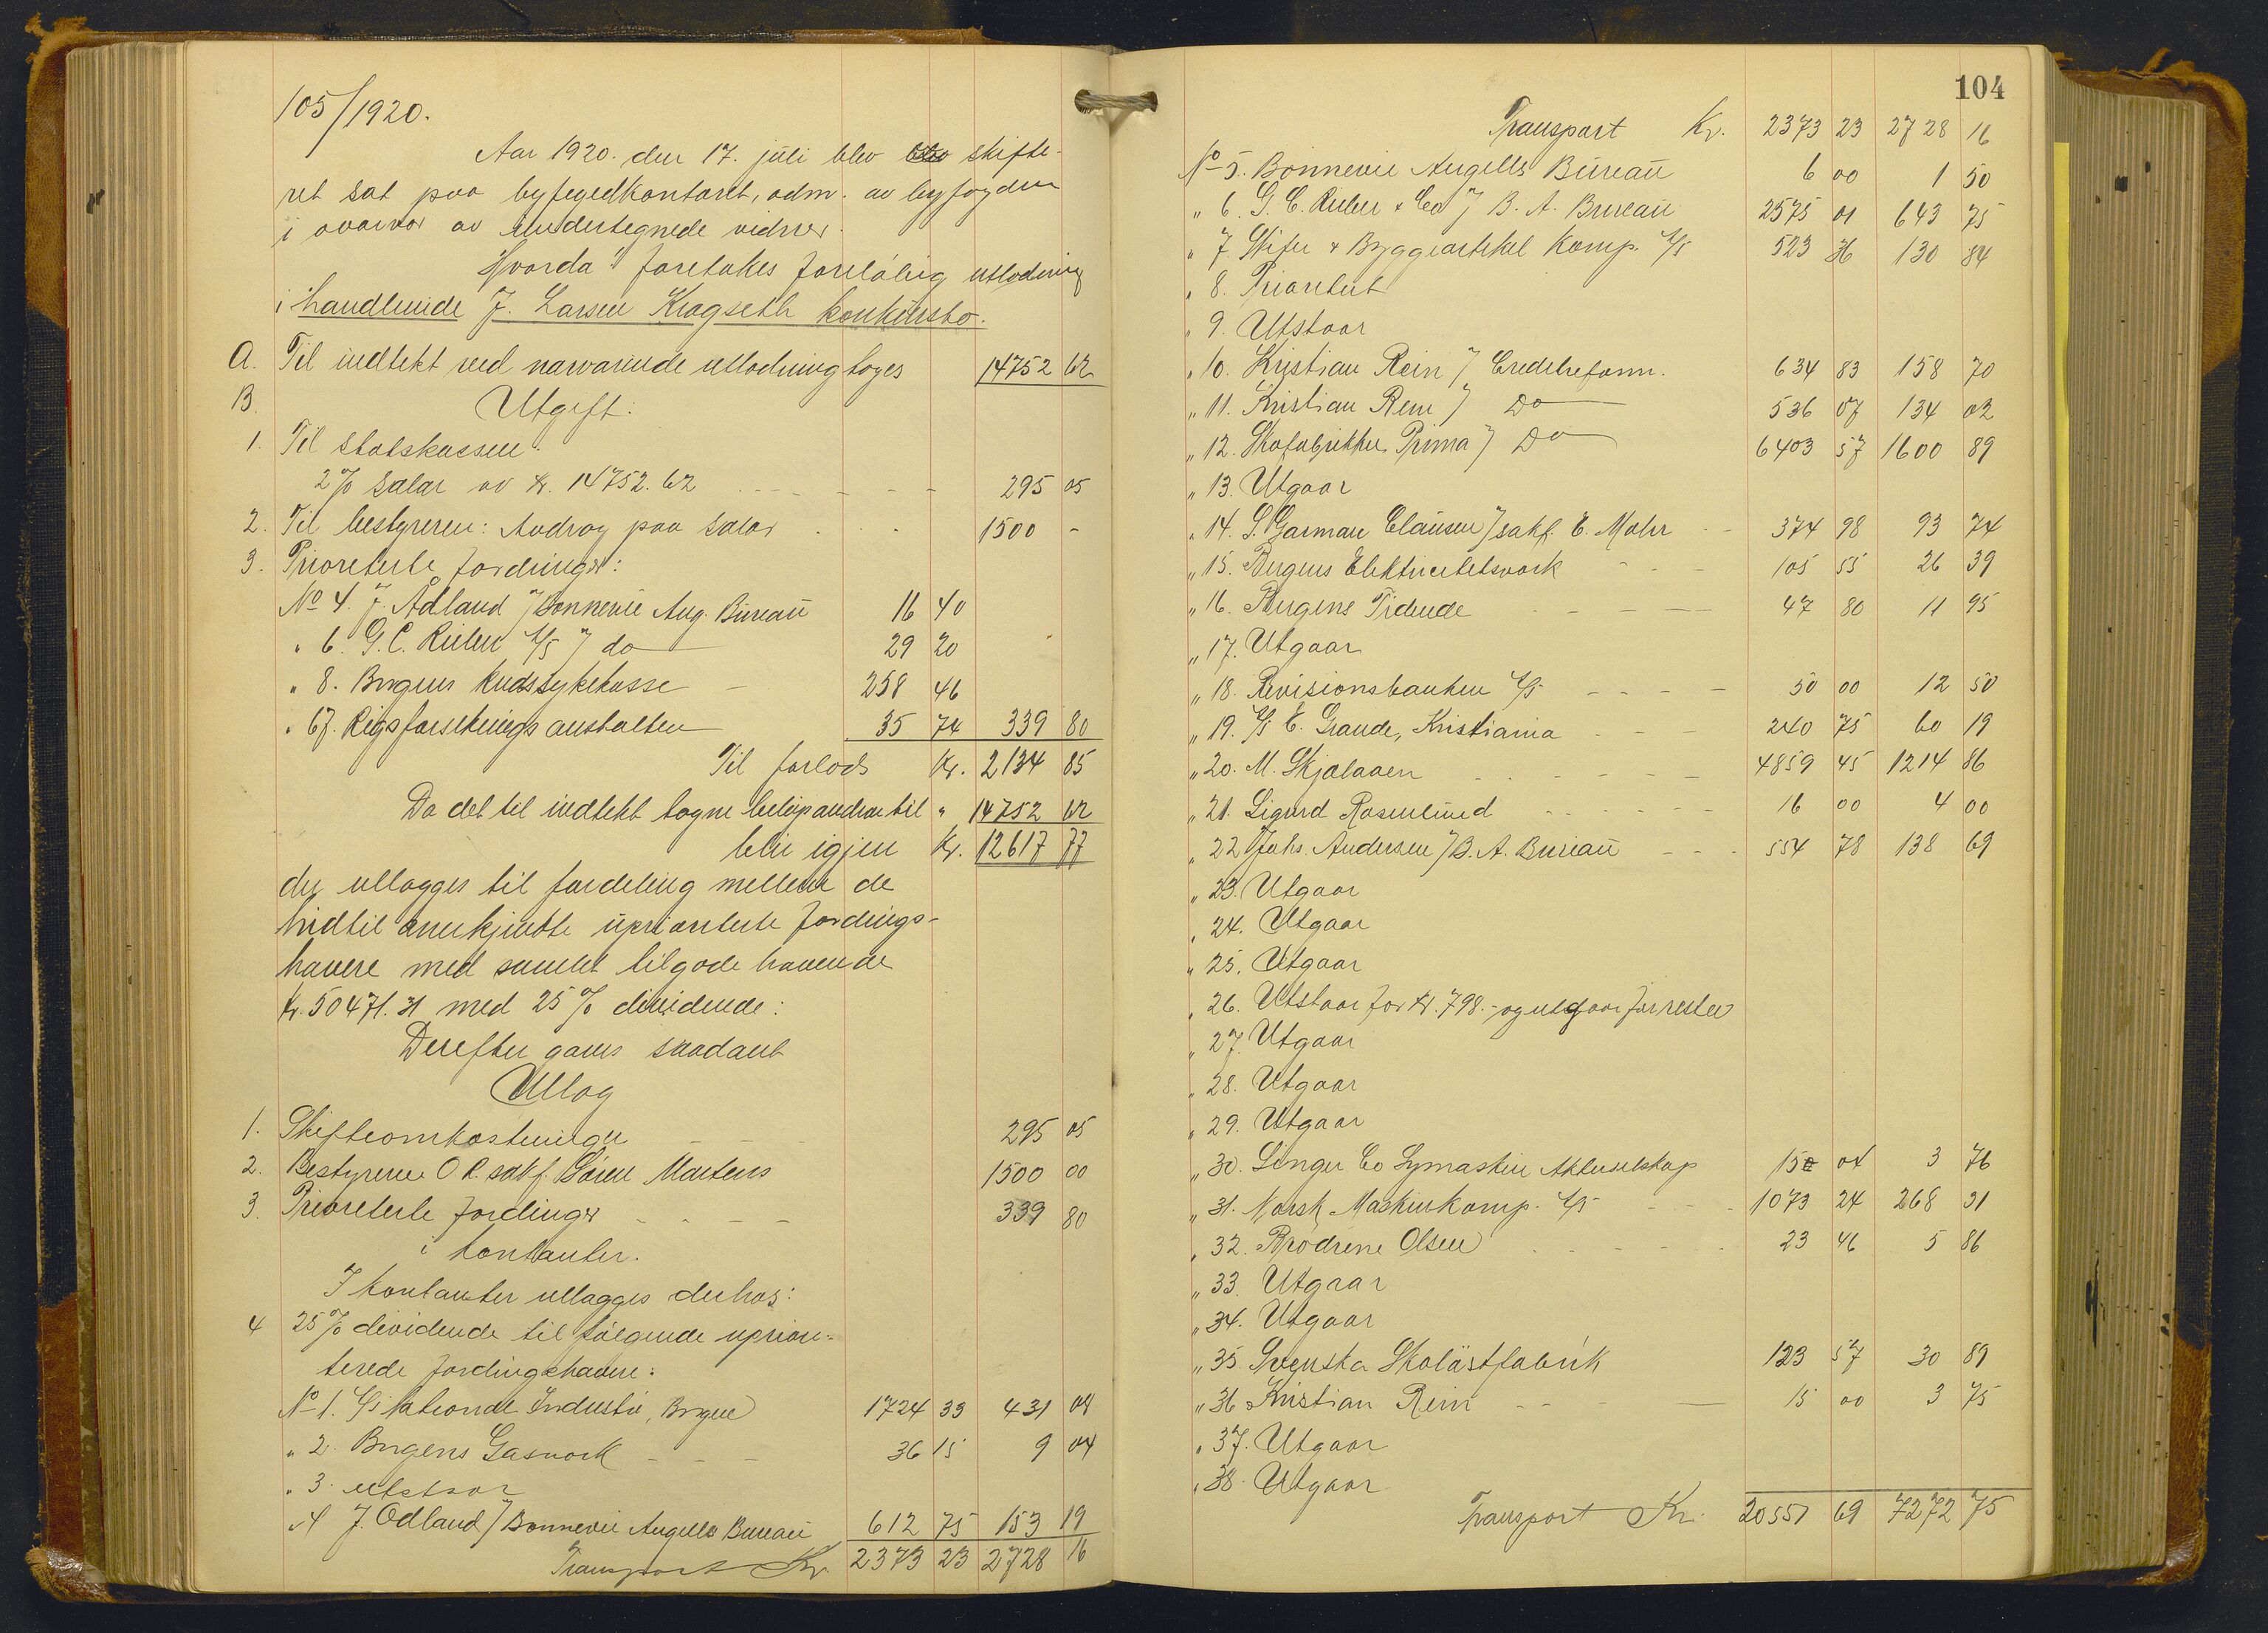 105/1920.
Aar 1920. den 17. juli blev skifte-
ret sat paa byfogedkontoret, adm. av byfogden
i overvær av undertegnede vidner.
Hvorda foretokes foreløbig utlodning
i handlende J. Larsen Kragseth konkursbo.
A. Til indtekt ved nærværende utlodning toges 14752 62
B. Utgift:
1. Til statskassen:
2% salær av kr. 14752.62 295 05
2. Til bestyreren: Avdrag paa salær 1500 -
3. Prioriterte fordringer:
No 4. J. Ådland / Bonnevie Ang. Bureau 16 40
" 6. G. C. Rieber A/S / do 29 20
" 8. Bergens kredssykekasse 258 46
" 67. Rigsforsikringsanstalten 35 74 339 80
Til forlods Kr. 2134 85
Da det til indtekt tagne beløp andrar til " 14752 62
blir igjen Kr. 12617 77
der utlægges til fordeling mellem de
hidtil anerkjendte upriorterte fordrings-
havere med samlet tilgodehavende
kr. 50471.31 med 25% dividende:
Derefter gaves saadant
Utlæg
1. Skifteomkostninger 295 05
2. Bestyreren O.R. sakf. Sören Martens 1500 00
3. Prioriterte fordinger 339 80
i kontanter.
I kontanter utlægges derhos:
4 25% dividende til følgende uprior-
terede fordingshavere:
No 1. A/S Nationale Industri, Bergen 1724 33 431 08
" 2. Bergens Gasverk 36 15 9 04
" 3. utstaar
" 4 J. Odland / Bonnevie Angells Bureau 612 75 153 19
Transport Kr. 2373 23 2728 16
104
Transport Kr. 2373 23 2728 16
No 5. Bonnevie Angells Bureau 6 00 1 50
" 6. G. C. Rieber & Co / B. A. Bureau 2575 01 643 75
" 7 Skifer & Byggeartikel Komp. A/S 523 36 130 84
" 8. Prioritert
" 9. Utstaar
" 10. Kristian Rein / Creditreform. 634 83 158 70
" 11. Kristian Rein / Do 536 07 134 02
" 12. Skofabrikken Prima / Do 6403 57 1600 89
" 13. Utgaar
" 14. S. Garman Clausen / sakf. E. Mohr 374 98 93 74
" 15. Bergens Elektricitetsverk 105 55 26 39
" 16. Bergens Tidende 47 80 11 95
" 17. Utgaar
" 18. Revisionsbanken A/S 50 00 12 50
" 19. A/S E. Grande, Kristiania 240 75 60 19
" 20. M. Skjelaaen 4859 45 1214 86
" 21. Sigurd Rosenlund 16 00 4 00
" 22 Johs. Andersen / B. A. Bureau 554 78 138 69
" 23. Utgaar
" 24. Utgaar
" 25. Utgaar
" 26. Utstaar for kr. 798.- og utgaar for resten
" 27. Utgaar
" 28. Utgaar
" 29. Utgaar
" 30. Singer Co Symaskin Aktieselskap 15 04 3 76
" 31. Norsk Maskinkomp. A/S 1073 24 268 31
" 32. Brødrene Olsen 23 46 5 86
" 33. Utgaar
" 34. Utgaar
" 35. Svenska Skolästfabrik 123 57 30 89
" 36 Kristian Rein 15 00 3 75
" 37. Utgaar
" 38. Utgaar
Transport Kr. 20551 69 7272 75